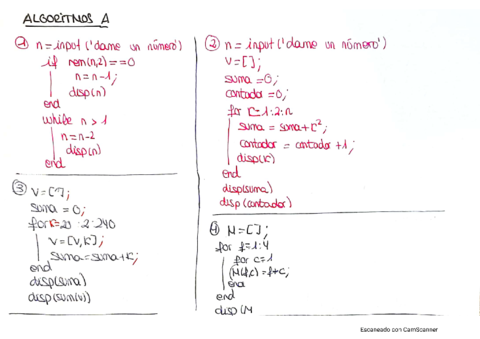 ALGORITMOS A
① n=input('dame un número')
if rem(n,2)==0
n=n-1;
disp(n)
end
while n>1
n=n-2
disp(n)
end
② n=input('dame un número')
V=[];
suma=0;
contador=0;
for K=1:2:n
suma=suma+K²;
contador=contador+1;
disp(K)
end
disp(suma)
disp(contador)
③ V=[];
suma=0;
for K=20:2:240
V=[V,K];
suma=suma+K;
end
disp(suma)
disp(sum(v))
④ M=[];
for f=1:4
for c=1
M(f,c)=f+c;
end
end
disp(M
Escaneado con CamScanner